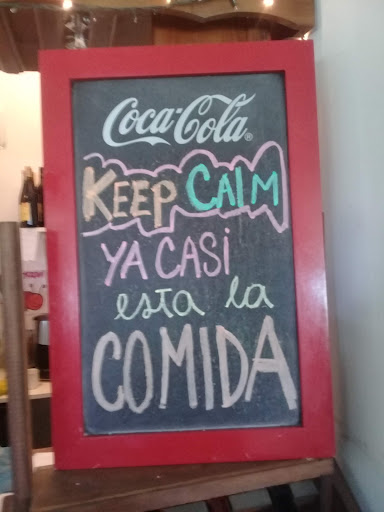 Coca-Cola
KEEP CALM
YA CASI
esta la
COMIDA